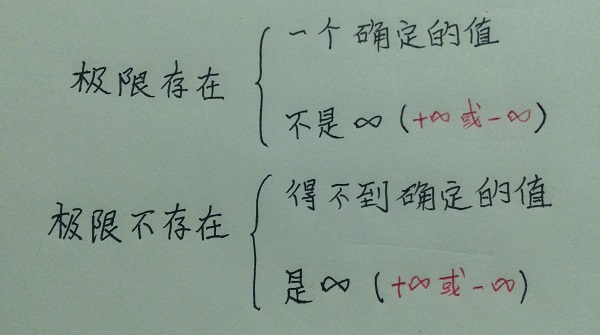 极限存在
一个确定的值
不是∞(+∞或-∞)
极限不存在
得不到确定的值
是∞(+∞或-∞)